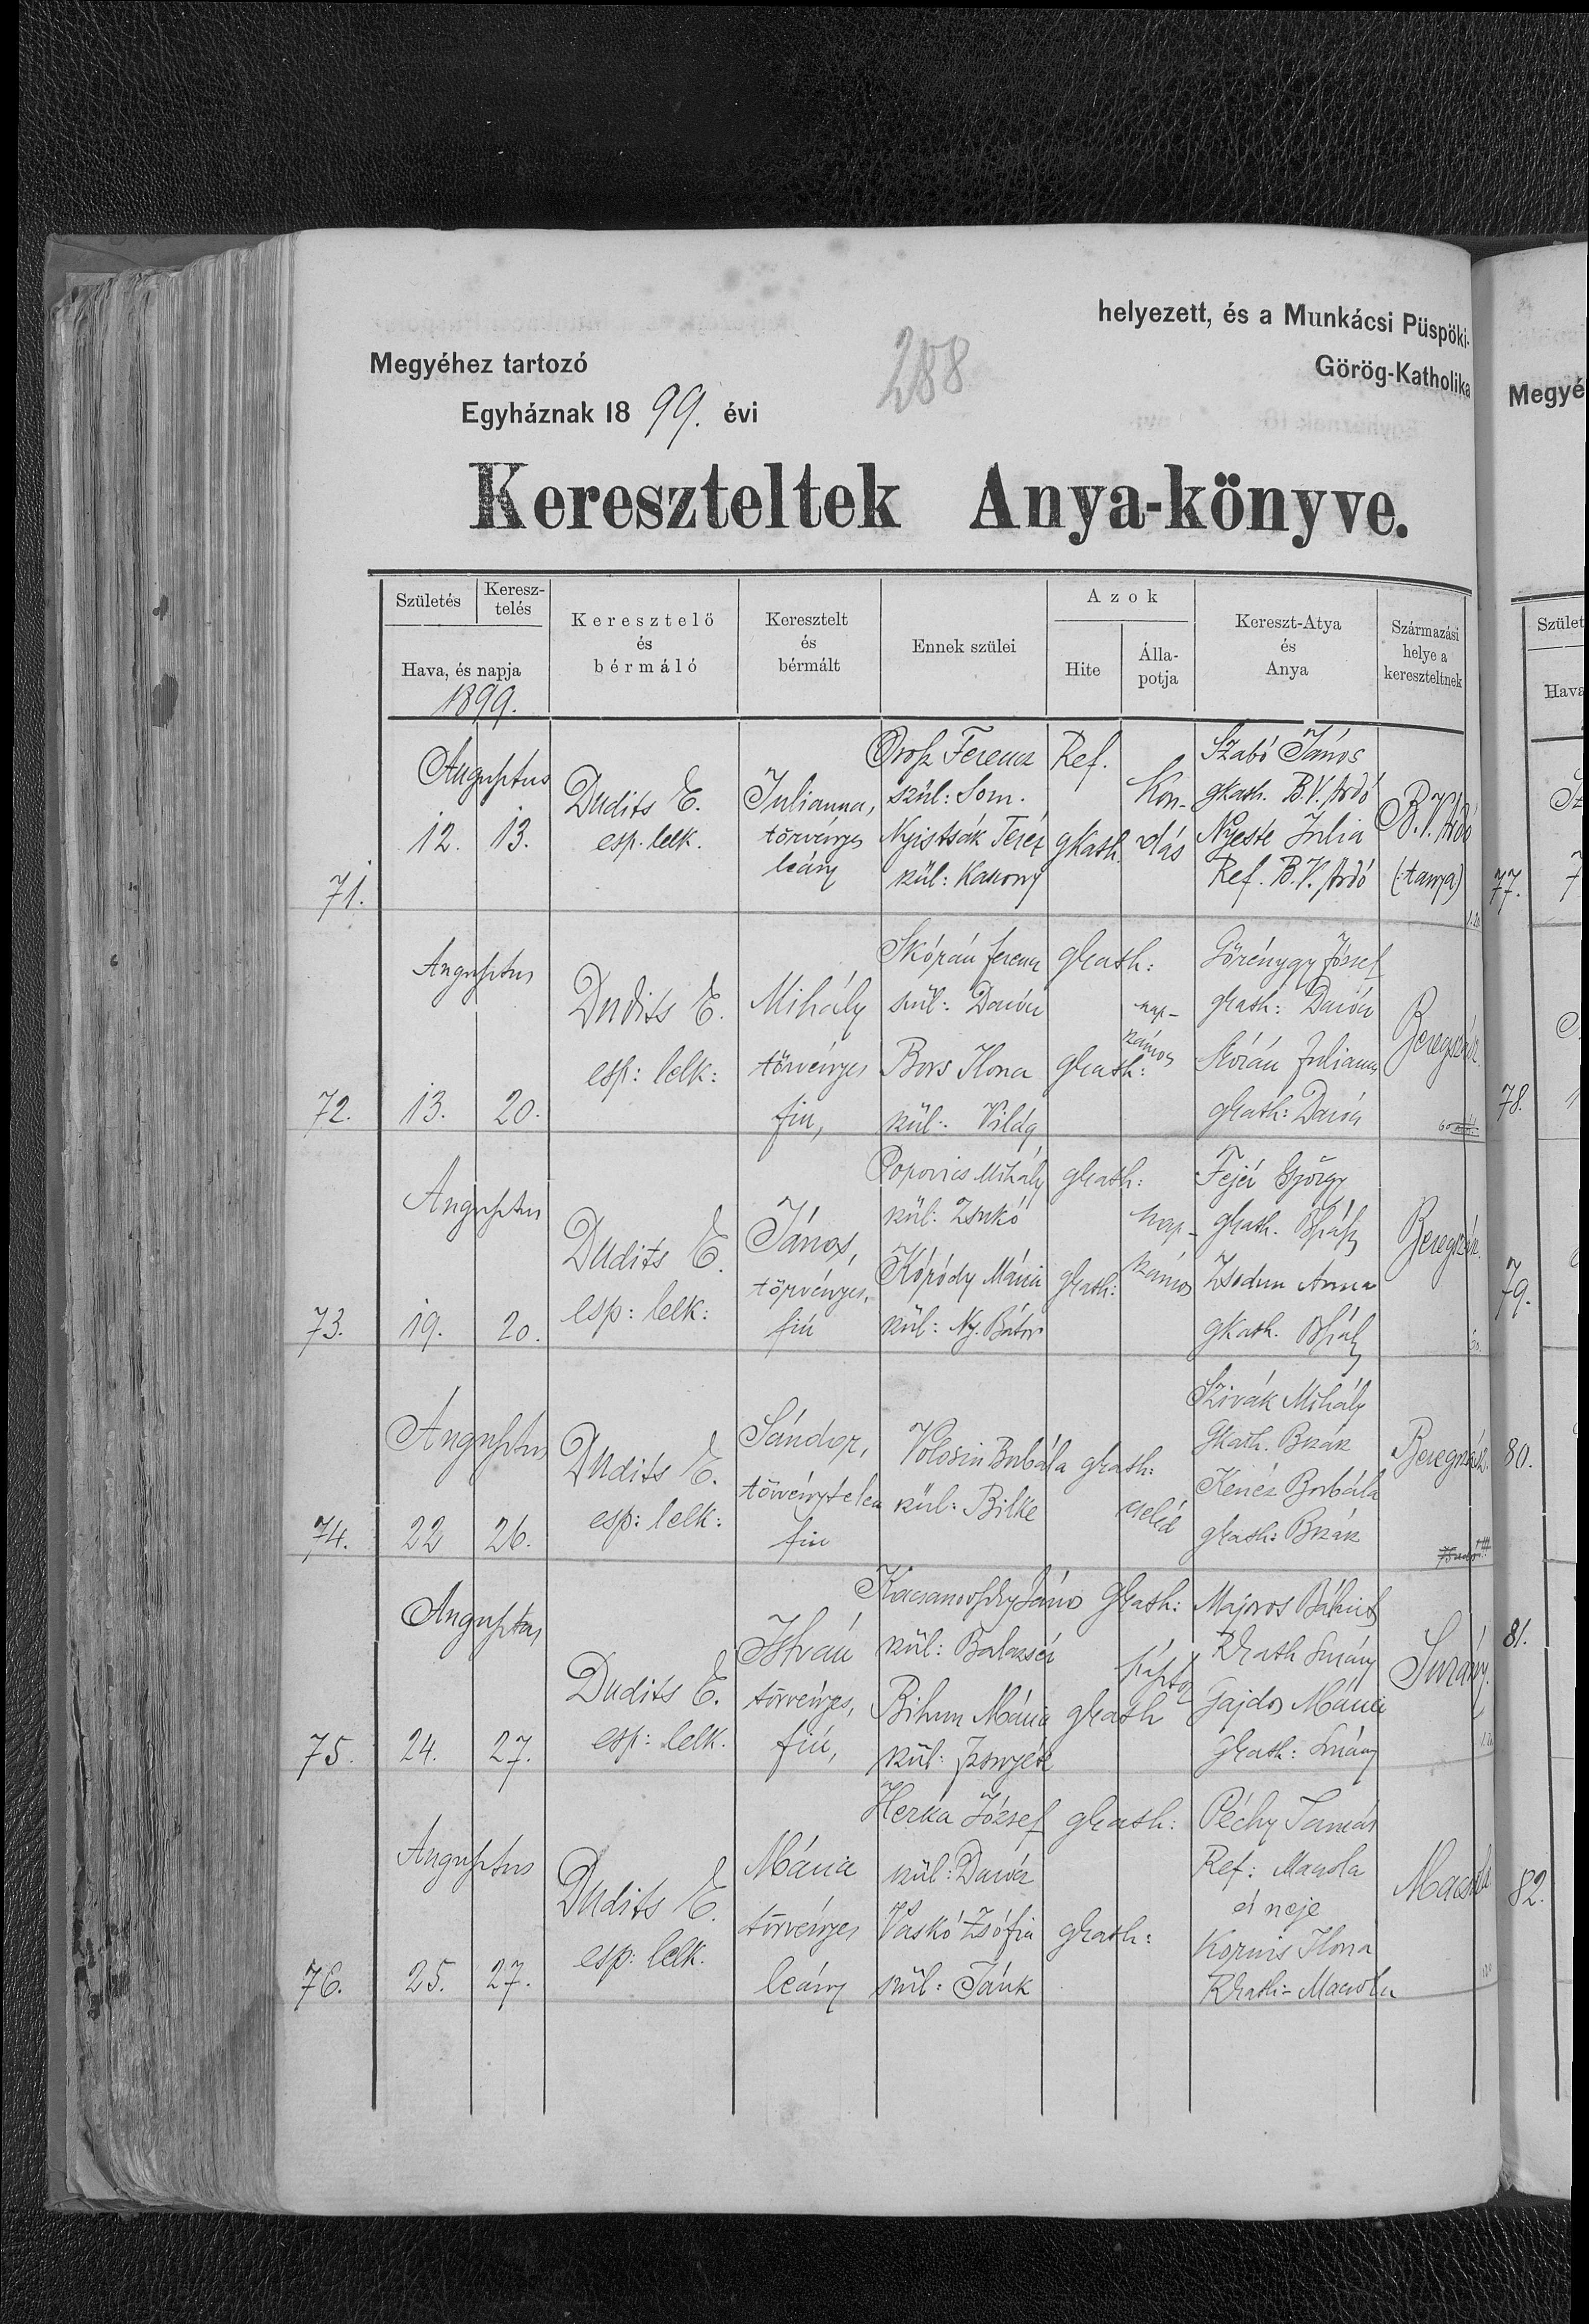 helyezett, és a Munkácsi Püspöki-
Megyéhez tartozó
288
Görög-Katholika
Egyháznak 1899. évi
Kereszteltek Anya-könyve.
Születés
Keresz-
telés
Hava, és napja
1899.
Keresztelő
és
bérmáló
Keresztelt
és
bérmált
Ennek szülei
Azok
Hite
Álla-
potja
Kereszt-Atya
és
Anya
Származási
helye a
kereszteltnek
71.
Augusztus
12. 13.
Dudits E.
esp. lelk.
Julianna,
törvényes
leány
Orosz Ferencz
szül: Som.
Nyistsák Teréz
szül: Kaszony
Ref.
gKath.
Kon-
dás
Szabó János
gkath. B.V. Ardó
Nyeste Julia
Ref. B.V. Ardó
B.V. Ardó
(tanya)
72.
Augusztus
13. 20.
Dudits E.
esp: lelk:
Mihály
törvényes
fiu,
Ferencz
szül: Darócz
Bors Ilona
szül:
gkath:
gkath:
nap-
számos
József
gkath: Darócz
Julianna
gkath: Darócz
Beregszász.
73.
Augusztus
19. 20.
Dudits E.
esp: lelk:
János,
törvényes,
fiú
Popovics Mihály
szül: Zsukó
Kóródy Mária
szül: Ny. Bátor
gkath:
gkath:
nap-
számos
Fejér György
gkath.
Anna
gkath.
Beregszász.
74.
Augusztus
22 26.
Dudits E.
esp: lelk:
Sándor,
törvénytelen
fiu
Volosin Borbála
szül: Bilke
gkath:
cseléd
Szivák Mihály
Gkath. Bszász
Kenéz Borbála
gkath: Bszász
Beregszász.
75.
Augusztus
24. 27.
Dudits E.
esp: lelk.
István
törvényes,
fiú,
Kacsanovszky János
szül: Balazsér
Bihun Mária
szül: Izsnyéte
Gkath:
gkath
Majoros Bálint
Rkath Surány
Gajdos Mária
Gkath: Surány
Surány.
76.
Augusztus
25. 27.
Dudits E.
esp: lelk.
Mária
törvényes
leány
Herka József
szül: Darócz
Vaskó Zsófia
szül: Jánk
gkath:
gkath:
Péchy Tamás
Ref: Macsola
és neje
Kornis Ilona
Rkath: Macsola
Macsola
Megyé
Szület
Hava
77.
78.
79.
80.
81.
82.